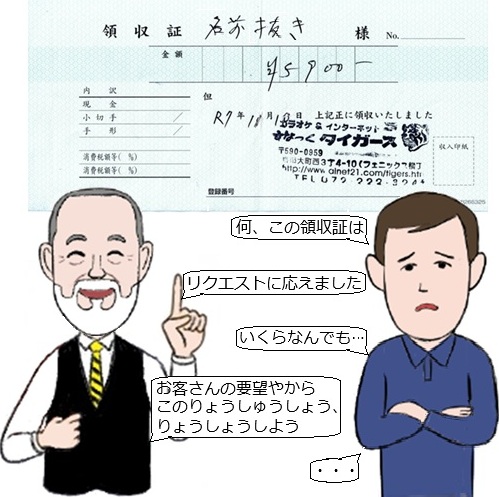 領収証 名前抜き 様 No.
金額 ¥5900-
内訳
現金
小切手
手形
消費税額等( %)
消費税額等( %)
但
R7年10月18日 上記正に領収いたしました
カラオケ & インターネット
みなっく タイガース
〒590-0959
大町西3丁4-10(フェニックス横丁
http://www.alnet21.com/tigers.ht
TEL 072-222-
収入印紙
登録番号
何、この領収証は
リクエストに応えました
いくらなんでも…
お客さんの要望やから
このりょうしゅうしょう、
りょうしょうしよう
・・・